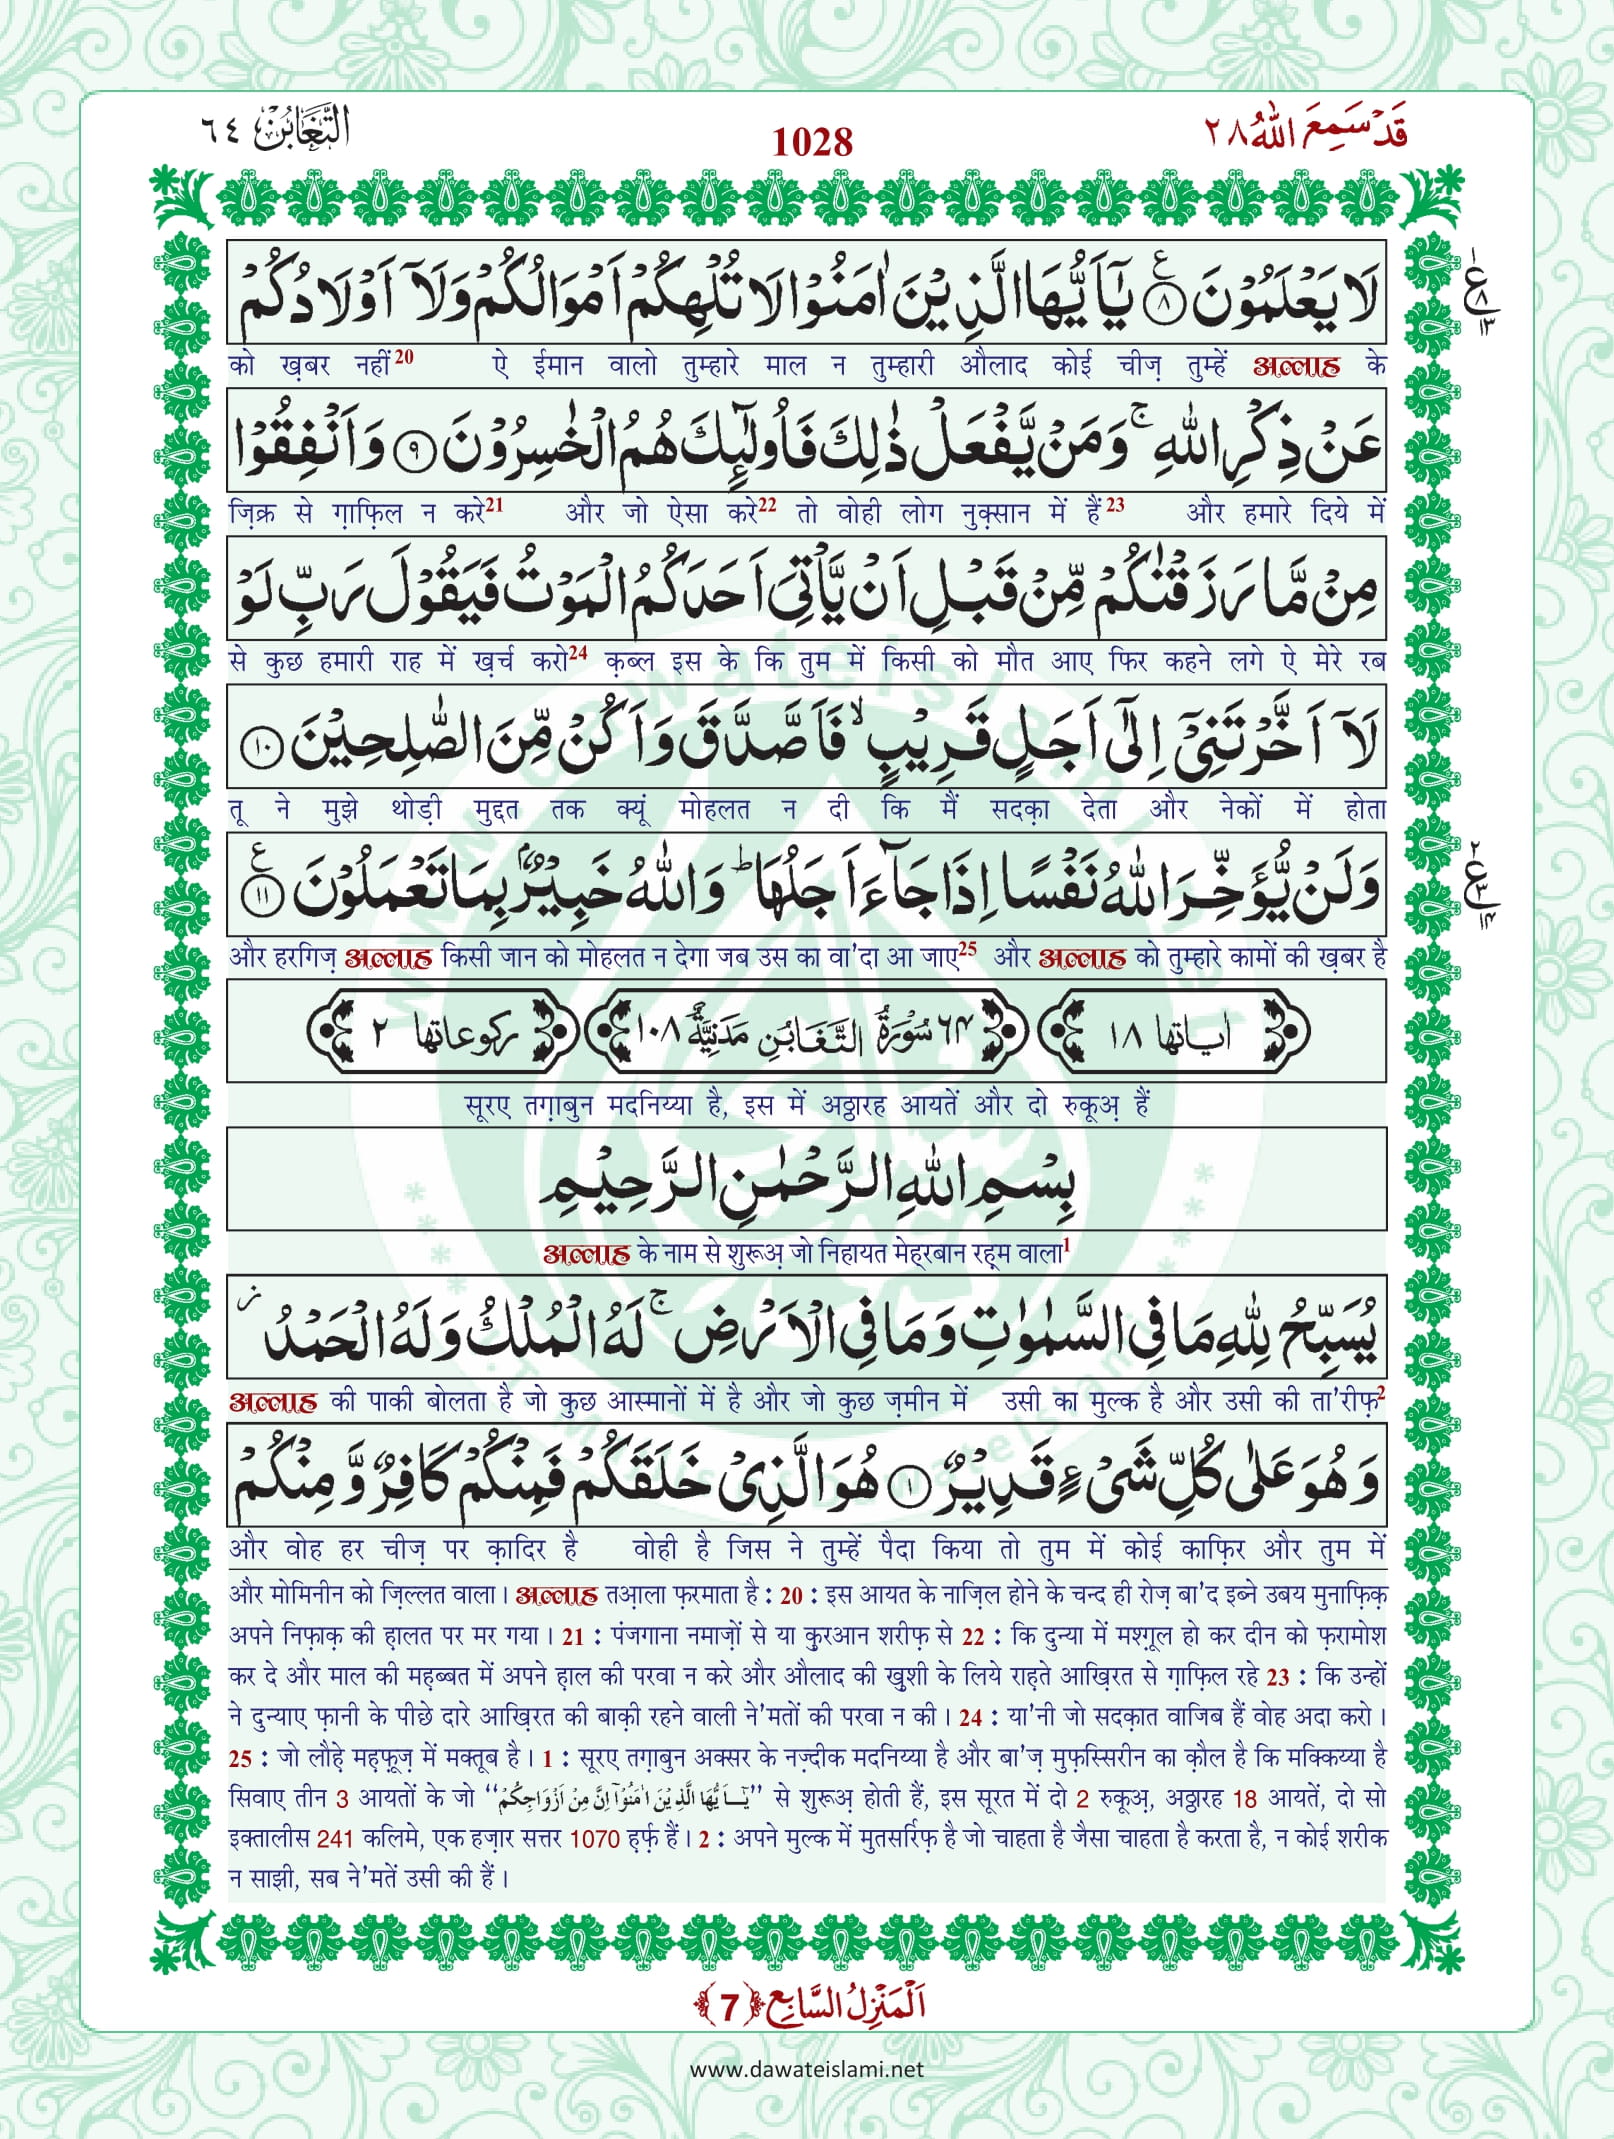 التَّغَابُن ٦٤
1028
قَدْ سَمِعَ اللّٰهُ ٢٨
لَا يَعْلَمُوْنَ ﴿٨﴾ ع يٰۤاَيُّهَا الَّذِيْنَ اٰمَنُوْا لَا تُلْهِكُمْ اَمْوَالُكُمْ وَلَاۤ اَوْلَادُكُمْ
ع ١ ٨ ١٣
को ख़बर नहीं20 ऐ ईमान वालो तुम्हारे माल न तुम्हारी औलाद कोई चीज़ तुम्हें अल्लाह के
عَنْ ذِكْرِ اللّٰهِ ۚ وَمَنْ يَّفْعَلْ ذٰلِكَ فَاُولٰٓئِكَ هُمُ الْخٰسِرُوْنَ ﴿٩﴾ وَاَنْفِقُوْا
ज़िक्र से ग़ाफ़िल न करे21 और जो ऐसा करे22 तो वोही लोग नुक़्सान में हैं23 और हमारे दिये में
مِنْ مَّا رَزَقْنٰكُمْ مِّنْ قَبْلِ اَنْ يَّاْتِىَ اَحَدَكُمُ الْمَوْتُ فَيَقُوْلَ رَبِّ لَوْ
से कुछ हमारी राह में ख़र्च करो24 क़ब्ल इस के कि तुम में किसी को मौत आए फिर कहने लगे ऐ मेरे रब
لَاۤ اَخَّرْتَنِىْۤ اِلٰٓى اَجَلٍ قَرِيْبٍ ۙ فَاَصَّدَّقَ وَاَكُنْ مِّنَ الصّٰلِحِيْنَ ﴿١٠﴾
तू ने मुझे थोड़ी मुद्दत तक क्यूं मोहलत न दी कि मैं सदक़ा देता और नेकों में होता
وَلَنْ يُّؤَخِّرَ اللّٰهُ نَفْسًا اِذَا جَآءَ اَجَلُهَا ؕ وَاللّٰهُ خَبِيْرٌۢ بِمَا تَعْمَلُوْنَ ﴿١١﴾ ع
ع ٢ ٣ ١٤
और हरगिज़ अल्लाह किसी जान को मोहलत न देगा जब उस का वा'दा आ जाए25 और अल्लाह को तुम्हारे कामों की ख़बर है
اٰياتها ١٨ ٦٤ سُوْرَةُ التَّغَابُنِ مَدَنِيَّةٌ ١٠٨ ركوعاتها ٢
सूरए तग़ाबुन मदनिय्या है, इस में अठ्ठारह आयतें और दो रुकूअ़ हैं
بِسْمِ اللّٰهِ الرَّحْمٰنِ الرَّحِيْمِ
अल्लाह के नाम से शुरूअ़ जो निहायत मेह्‌रबान रह़्‌म वाला1
يُسَبِّحُ لِلّٰهِ مَا فِى السَّمٰوٰتِ وَمَا فِى الْاَرْضِ ۚ لَهُ الْمُلْكُ وَلَهُ الْحَمْدُ ز
अल्लाह की पाकी बोलता है जो कुछ आस्मानों में है और जो कुछ ज़मीन में उसी का मुल्क है और उसी की ता'रीफ़2
وَهُوَ عَلٰى كُلِّ شَىْءٍ قَدِيْرٌ ﴿١﴾ هُوَ الَّذِىْ خَلَقَكُمْ فَمِنْكُمْ كَافِرٌ وَّمِنْكُمْ
और वोह हर चीज़ पर क़ादिर है वोही है जिस ने तुम्हें पैदा किया तो तुम में कोई काफ़िर और तुम में
और मोमिनीन को ज़िल्लत वाला। अल्लाह तआ़ला फ़रमाता है : 20 : इस आयत के नाज़िल होने के चन्द ही रोज़ बा'द इब्ने उबय मुनाफ़िक़
अपने निफ़ाक़ की ह़ालत पर मर गया। 21 : पंजगाना नमाज़ों से या क़ुरआन शरीफ़ से 22 : कि दुन्या में मश्ग़ूल हो कर दीन को फ़रामोश
कर दे और माल की मह़ब्बत में अपने ह़ाल की परवा न करे और औलाद की ख़ुशी के लिये राह़ते आख़िरत से ग़ाफ़िल रहे 23 : कि उन्हों
ने दुन्याए फ़ानी के पीछे दारे आख़िरत की बाक़ी रहने वाली ने'मतों की परवा न की। 24 : या'नी जो सदक़ात वाजिब हैं वोह अदा करो।
25 : जो लौह़े मह़फ़ूज़ में मक्तूब है। 1 : सूरए तग़ाबुन अक्सर के नज़्दीक मदनिय्या है और बा'ज़ मुफ़स्सिरीन का क़ौल है कि मक्किय्या है
सिवाए तीन 3 आयतों के जो “يٰۤاَيُّهَا الَّذِيْنَ اٰمَنُوْۤا اِنَّ مِنْ اَزْوَاجِكُمْ” से शुरूअ़ होती हैं, इस सूरत में दो 2 रुकूअ़, अठ्ठारह 18 आयतें, दो सो
इक्तालीस 241 कलिमे, एक हज़ार सत्तर 1070 ह़र्फ़ हैं। 2 : अपने मुल्क में मुतसर्रिफ़ है जो चाहता है जैसा चाहता है करता है, न कोई शरीक
न साझी, सब ने'मतें उसी की हैं।
اَلْمَنْزِلُ السَّابِع ﴿7﴾
www.dawateislami.net